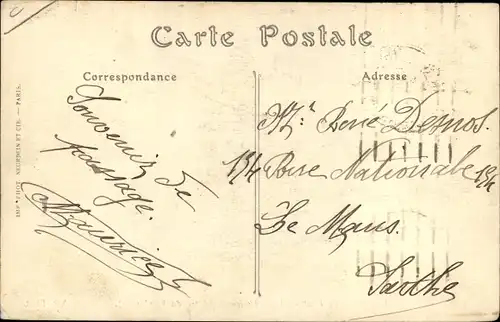 Carte Postale
Correspondance
Adresse
Souvenir de
passage.
Maurice
Mr René Desnos.
134 Rue Nationale 134
Le Mans.
Sarthe
IMP. PHOT. NEURDEIN ET CIE. — PARIS.